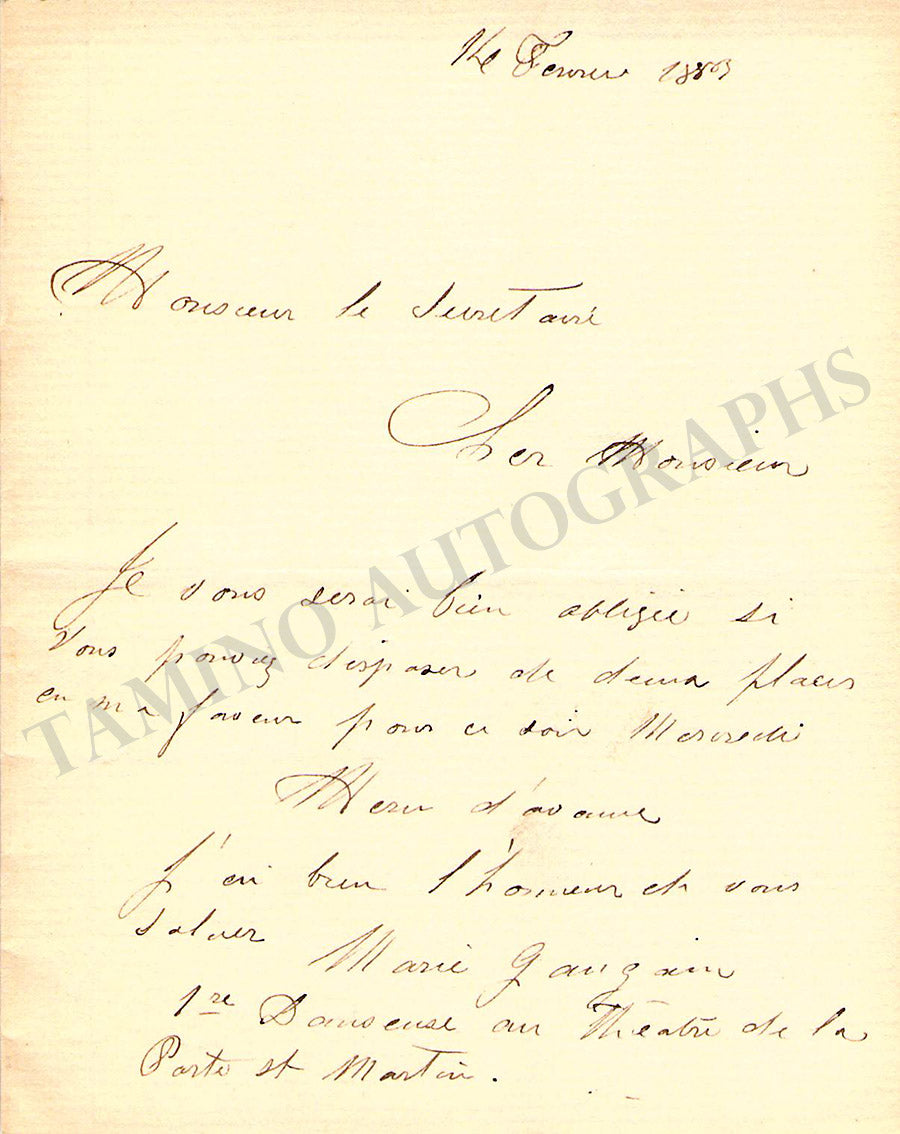 Fevrier 188
Monsieur le Secretaire
Cher Monsieur
Je vous serai bien obligée si
vous pouvez disposer de deux places
en ma faveur pour ce soir Mercredi
Merci d'avance
J'ai bien l'honneur de vous
saluer
Marie Gaugain
1re Danseuse au Théatre de la
Porte st Martin.
TAMINO AUTOGRAPHS